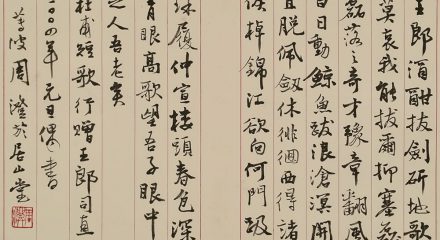 王郎酒酣拔劍斫地歌
莫哀我能拔爾抑塞
磊落之奇才豫章翻風
白日動鯨魚跋浪滄溟開
且脫佩劍休徘徊西得諸
侯棹錦江欲向何門趿
珠履仲宣樓頭春色深
青眼高歌望吾子眼中
之人吾老矣
杜甫短歌行贈王郎司直
二〇〇四年元旦偶書
蓴波周澄於居山堂